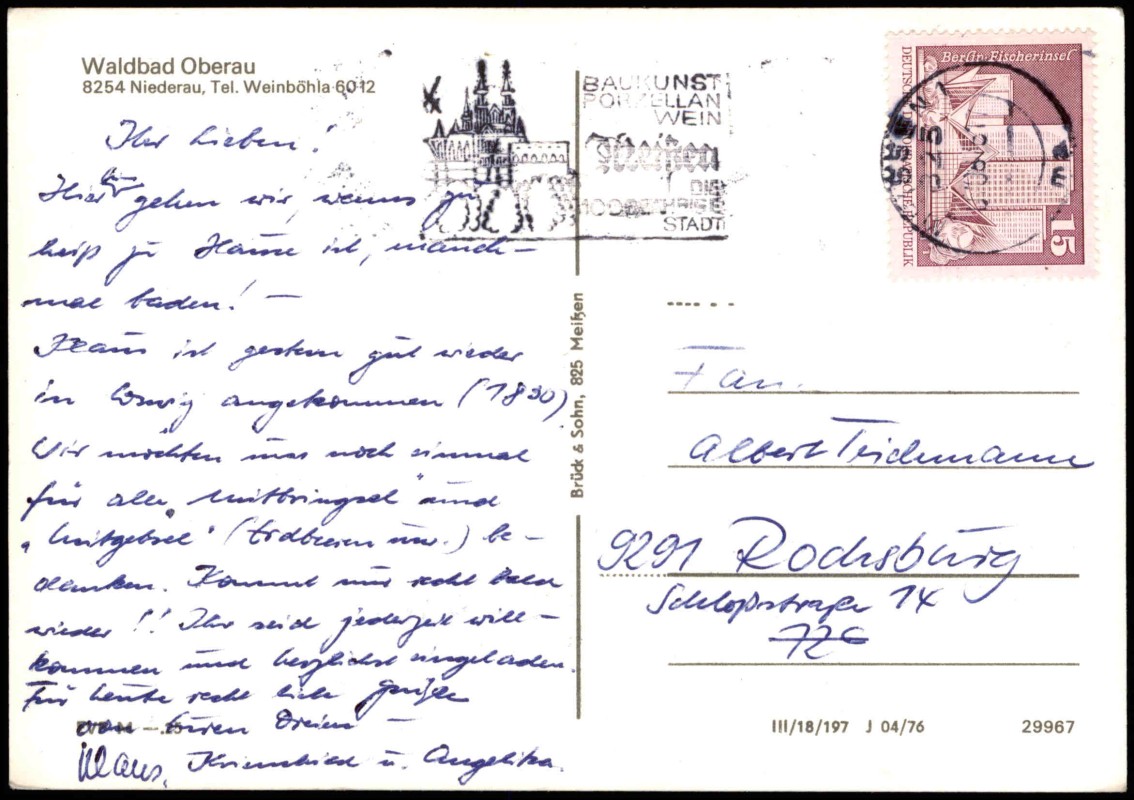 Waldbad Oberau
8254 Niederau, Tel. Weinböhla 6012
Ihr Lieben!
Hier gehen wir, wenns zu
heiß zu Hause ist, manch-
mal baden! —
Klaus ist gestern gut wieder
in angekommen (1830)
Wir möchten uns noch einmal
für alle „Mitbringsel" und
„Mitgebsel" (Erdbeeren usw.) be-
danken. Kommt nur recht bald
wieder!! Ihr seid jederzeit will-
kommen und herzlichst eingeladen.
Für heute recht liebe Grüße
von Euren Dreien —
Klaus, u. Angelika.
BAUKUNST
PORZELLAN
WEIN
Meißen
DIE
1000 JÄHRIGE
STADT
Berlin-Fischerinsel
DEUTSCHE DEMOKRATISCHE REPUBLIK
15
Brück & Sohn, 825 Meißen
Fam.
Albert Teichmann
9291 Rochsburg
Schloßstraße 14
726
III/18/197 J 04/76
29967